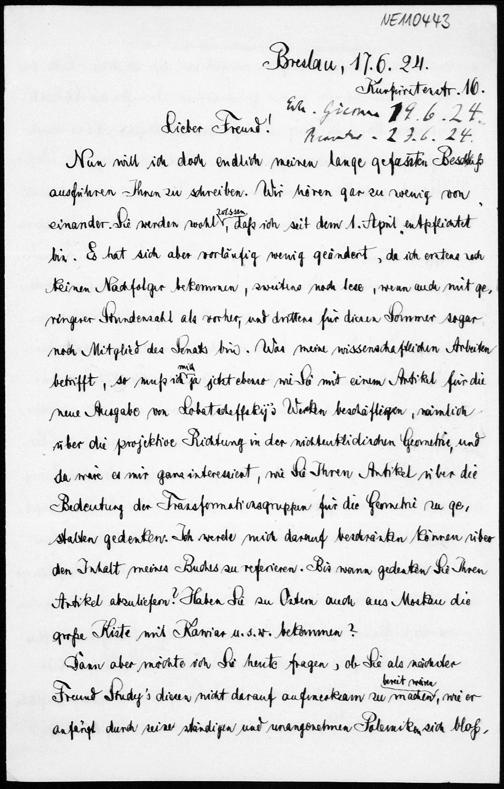 NE110443
Breslau, 17.6.24.
Kurfürstenstr. 16.
19.6.24.
23.6.24.
Lieber Freund!
Nun will ich doch endlich meinen lange gefaßten Beschluß
ausführen Ihnen zu schreiben. Wir hören gar zu wenig von
einander. Sie werden wohl wissen, daß ich seit dem 1. April entpflichtet
bin. Es hat sich aber vorläufig wenig geändert, da ich erstens noch
keinen Nachfolger bekommen, zweitens noch lese, wenn auch mit ge,
ringerer Stundenzahl als vorher, und drittens für diesen Sommer sogar
noch Mitglied des Senats bin. Was meine wissenschaftlichen Arbeiten
betrifft, so muß ich mich ja jetzt ebenso wie Sie mit einem Artikel für die
neue Ausgabe von Lobatscheffskij's Werken beschäftigen, nämlich
über die projektive Richtung in der nichteuklidischen Geometrie, und
da wäre es mir ganz interessant, wie Sie Ihren Artikel über die
Bedeutung der Transformationsgruppen für die Geometrie zu ge,
stalten gedenken. Ich werde mich darauf beschränken können über
den Inhalt meines Buches zu referieren. Bis wann gedenken Sie Ihren
Artikel abzuliefern? Haben Sie zu Ostern auch aus Moskau die
große Kiste mit Kaviar u.s.w. bekommen?
Dann aber möchte ich Sie heute fragen, ob Sie als nächster
Freund Study's diesen nicht darauf aufmerksam zu machen bereit wären, wie er
anfängt durch seine ständigen und unangenehmen Polemiken sich bloß,